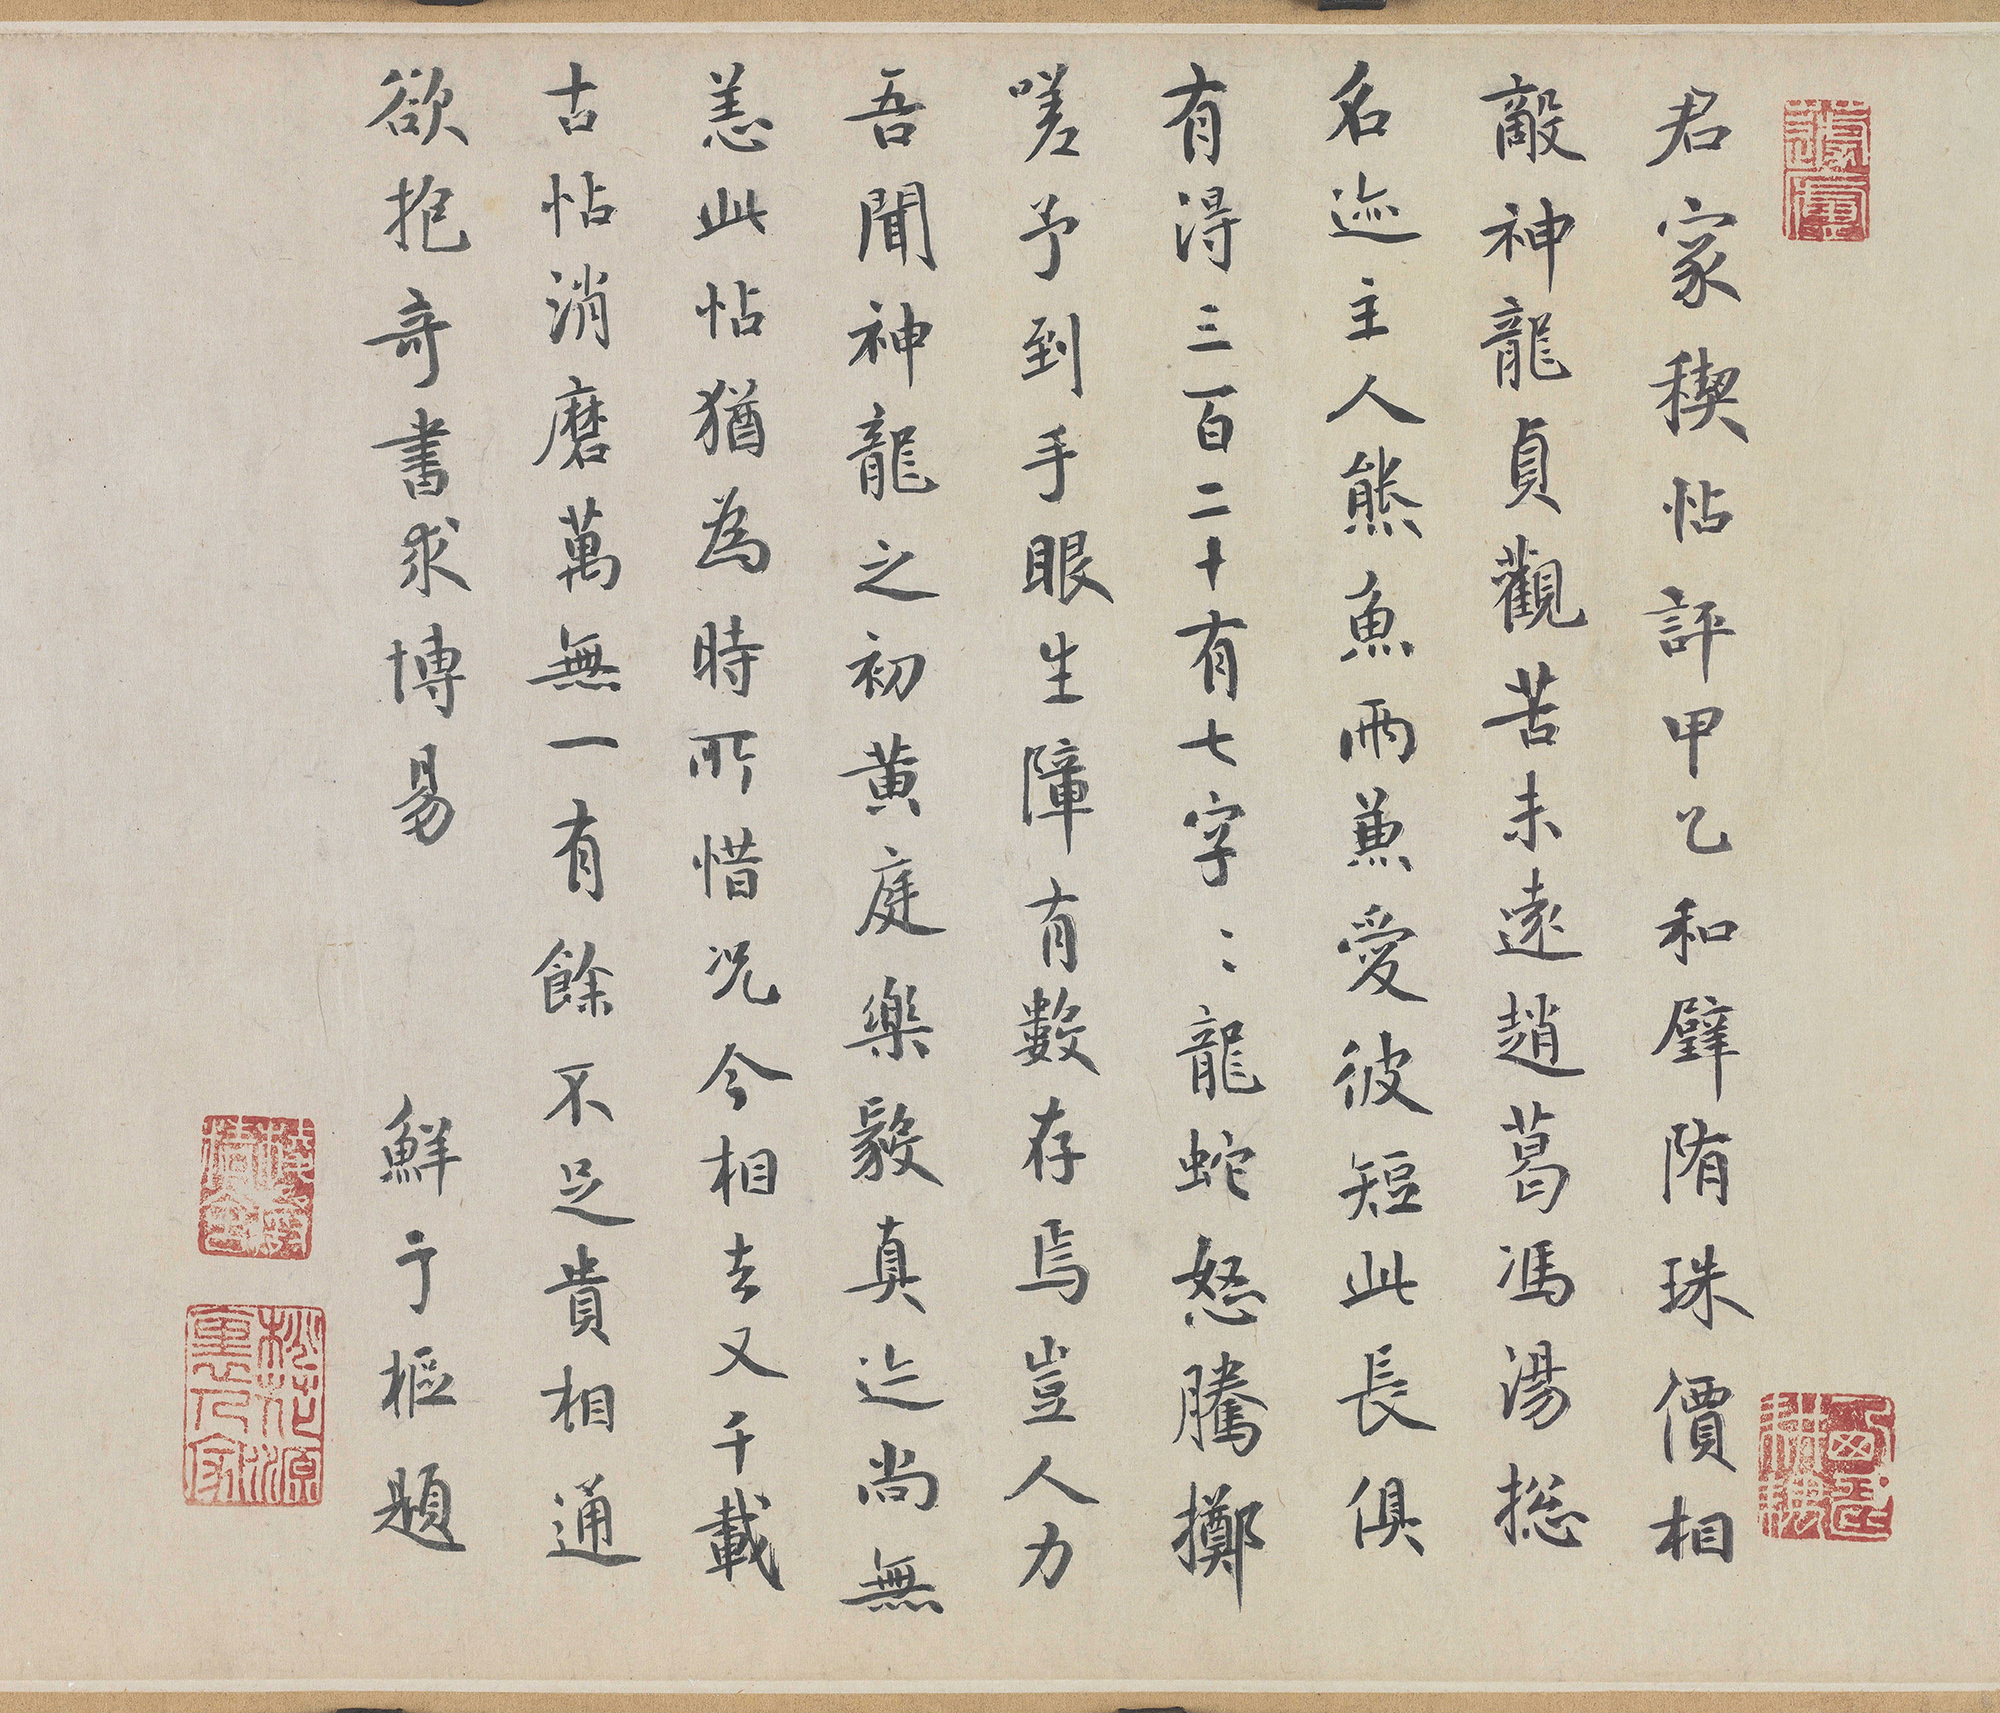 君家稧帖評甲乙和璧隋珠價相
敵神龍貞觀苦未遠趙葛馮湯捴
名迹主人熊魚兩兼愛彼短此長俱
有得三百二十有七字：：龍蛇怒騰擲
嗟予到手眼生障有數存焉豈人力
吾聞神龍之初黃庭樂毅真迹尚無
恙此帖猶為時所惜況今相去又千載
古帖消磨萬無一有餘不足貴相通
欲抱奇書求博易
鮮于樞題